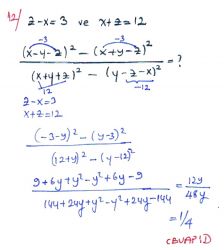 12/ z-x=3 ve x+z=12
-3 -3
(x-y-z)² - (x+y-z)²
/ = ?
(x+y+z)² - (y-z-x)²
12 -12
z-x=3
x+z=12
(-3-y)² - (y-3)²
/
(12+y)² - (y-12)²
9+6y+y²-y²+6y-9 / 144+24y+y²-y²+24y-144 = 12y / 48y
= 1/4
(CEVAP: D)